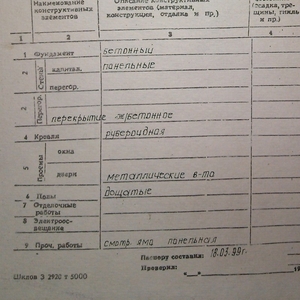 Наименование конструктивных элементов
Описание конструктивных элементов (материал, конструкция, отделка и пр.)
(осадка, тре-
щины, гниль
и пр.)
1 2 3
1 Фундамент бетонный
2 Стены капитал. панельные
перегор.
3 Перегор. перекрытие ж/бетонное
4 Кровля рубероидная
5 Проемы окна
двери металлические в-та
6 Полы Дощатые
7 Отделочные работы
8 Электроос-
вещение
9 Проч. работы смотр яма панельная
Паспорт составил: 18.03.99г.
Проверил: "
Шклов З 2920 т 5000